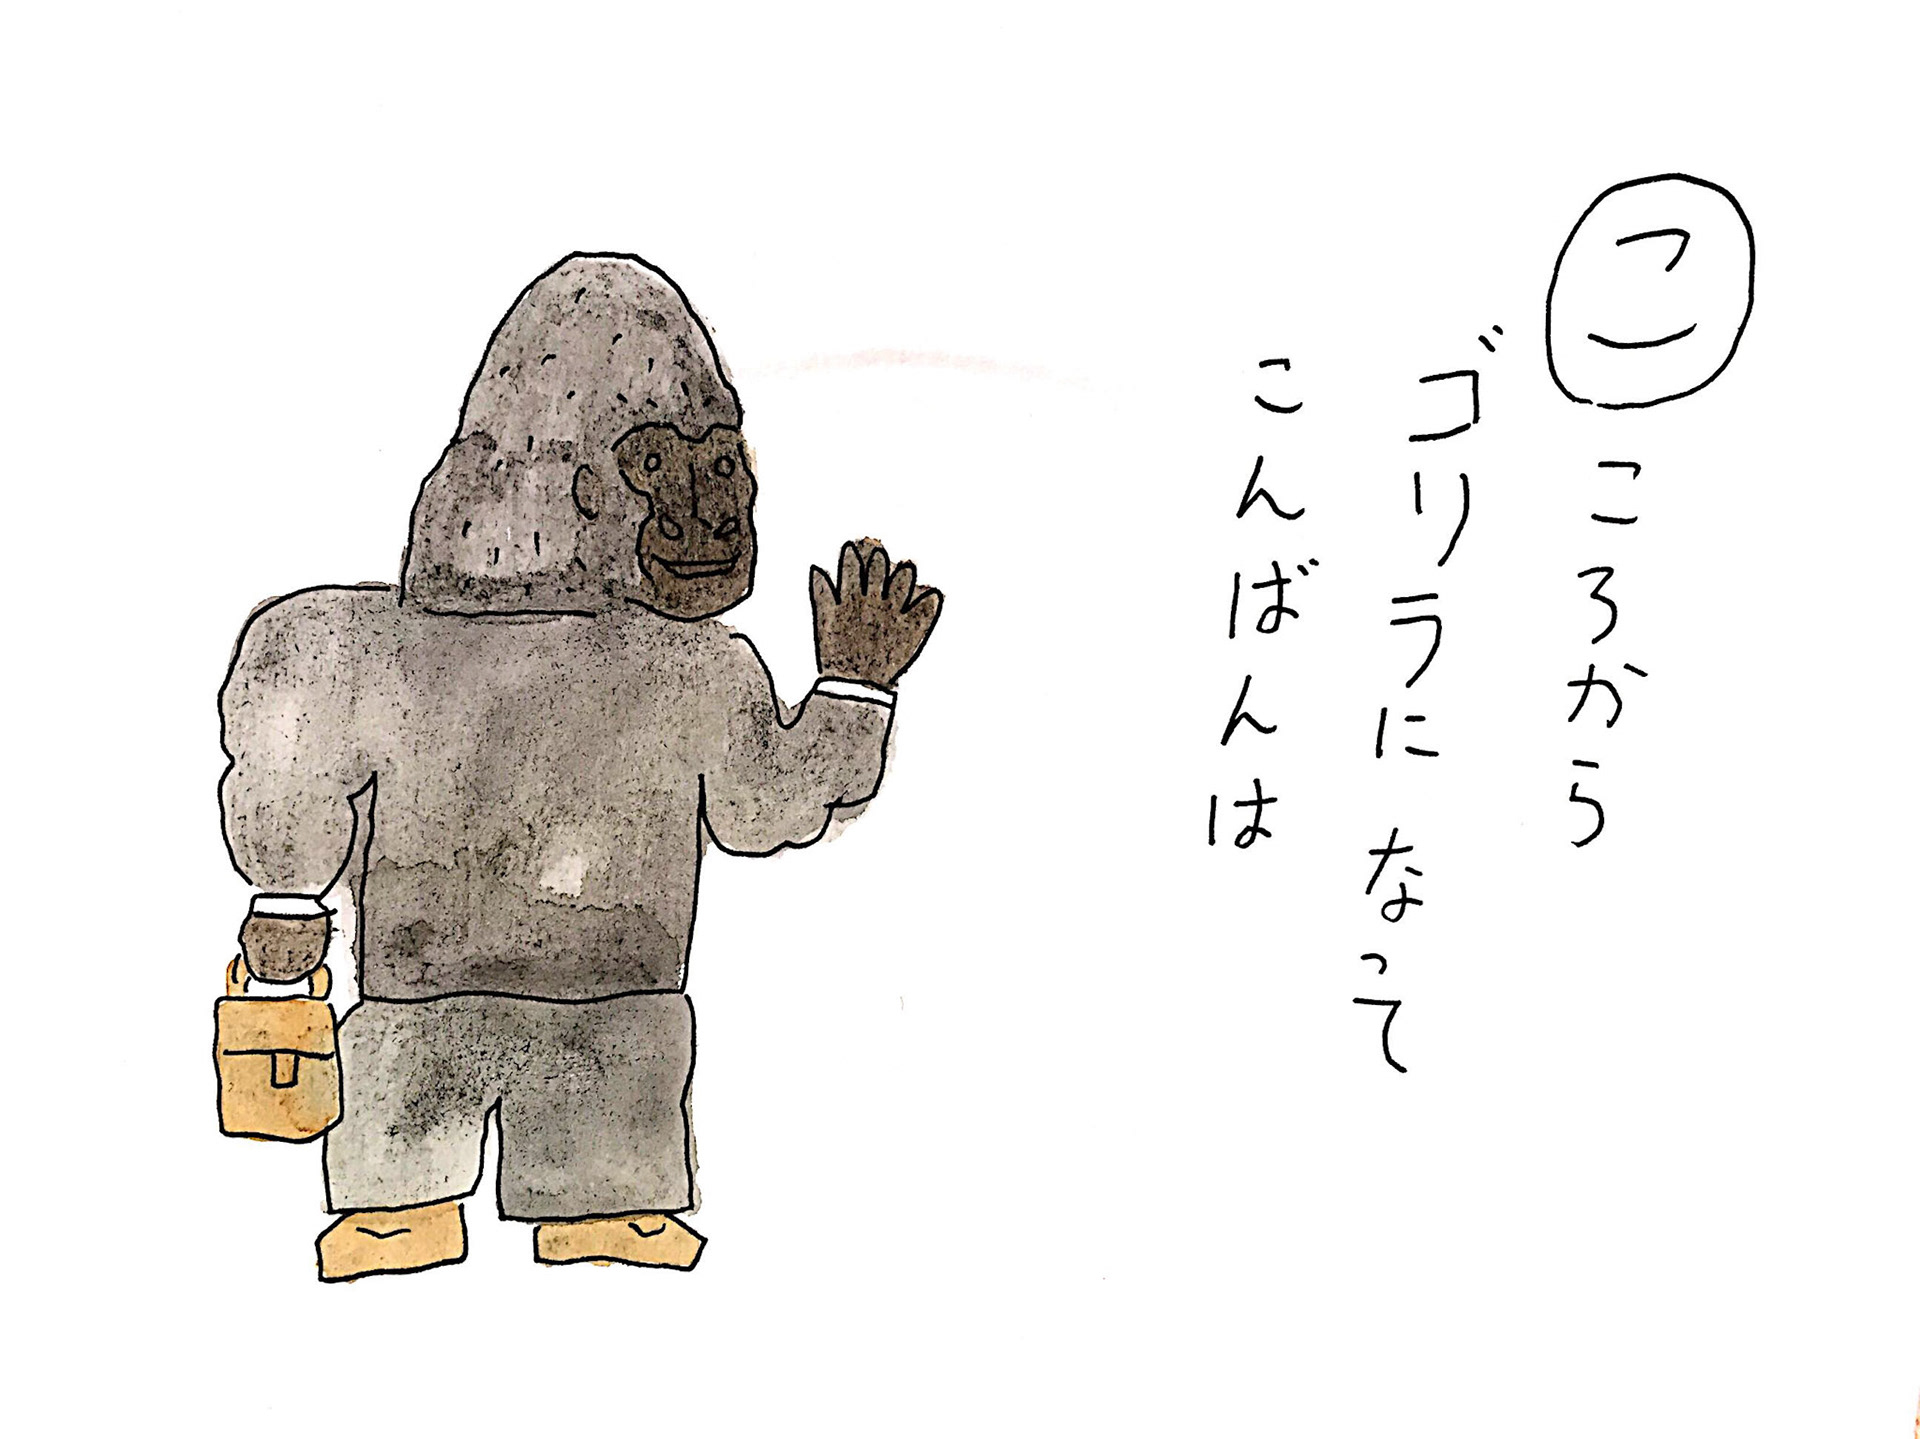 こ
ころから
ゴリラに なって
こんばんは